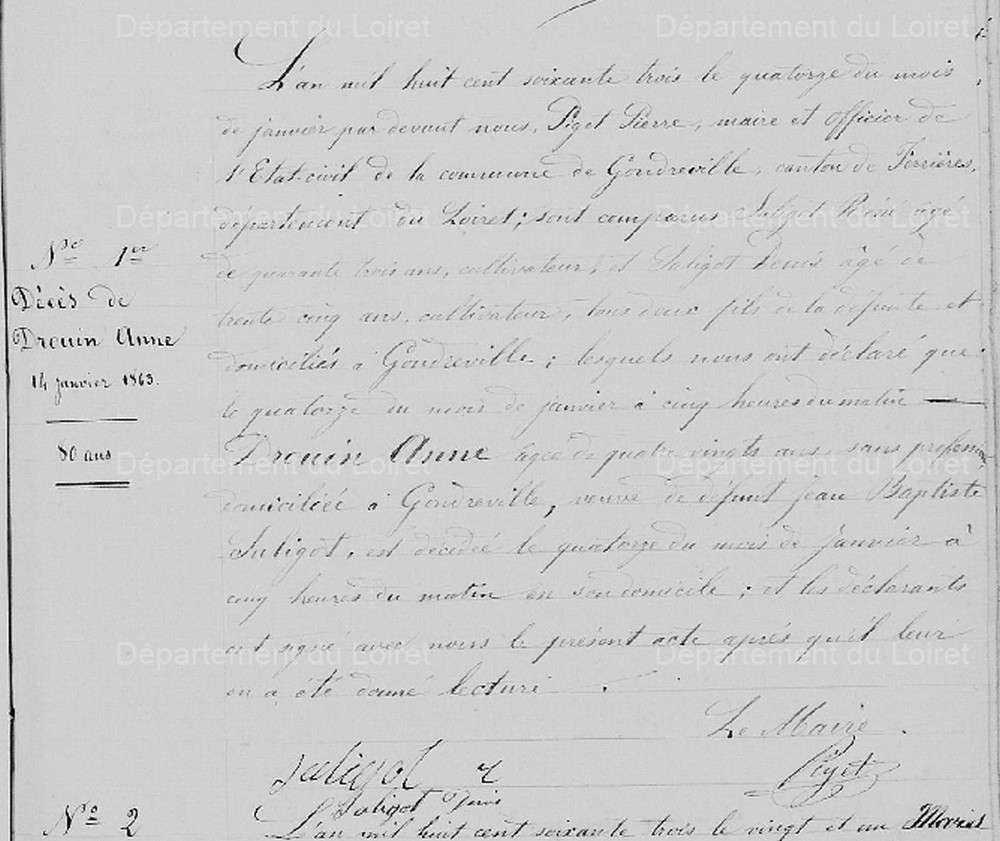 Département du Loiret Département du Loiret
L'an mil huit cent soixante trois le quatorze du mois
de janvier par devant nous, Piget Pierre, maire et officier de
l'Etat-civil de la commune de Gondreville, canton de Ferrières,
département du Loiret; sont comparus Saligot René âgé
Département du Loiret Département du Loiret
de quarante trois ans, cultivateur, et Saligot Denis âgé de
trente cinq ans, cultivateur, tous deux fils de la défunte et
domiciliés à Gondreville; lesquels nous ont déclaré que
le quatorze du mois de janvier à cinq heures du matin
Drouin Anne âgée de quatre vingts ans, sans profession
Département du Loiret Département du Loiret
domiciliée à Gondreville, veuve de défunt Jean Baptiste
Saligot, est décédée le quatorze du mois de Janvier à
cinq heures du matin en son domicile; et les déclarants
ont signé avec nous le présent acte après qu'il leur
Département du Loiret Département du Loiret
en a été donné lecture.
Le Maire.
Saligot r
Piget
Saligot Denis
N° 1er
Décès de
Drouin Anne
14 janvier 1863.
80 ans
N° 2
L'an mil huit cent soixante trois le vingt et un